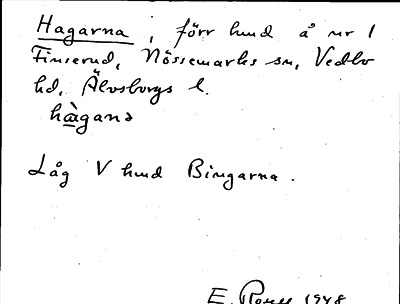 Hagarna, förr hmd å nr 1
Finserud, Nössemarks sn, Vedbo
hd, Älvsborgs l.
hàgana
Låg V hmd Bingarna.
E. 1948